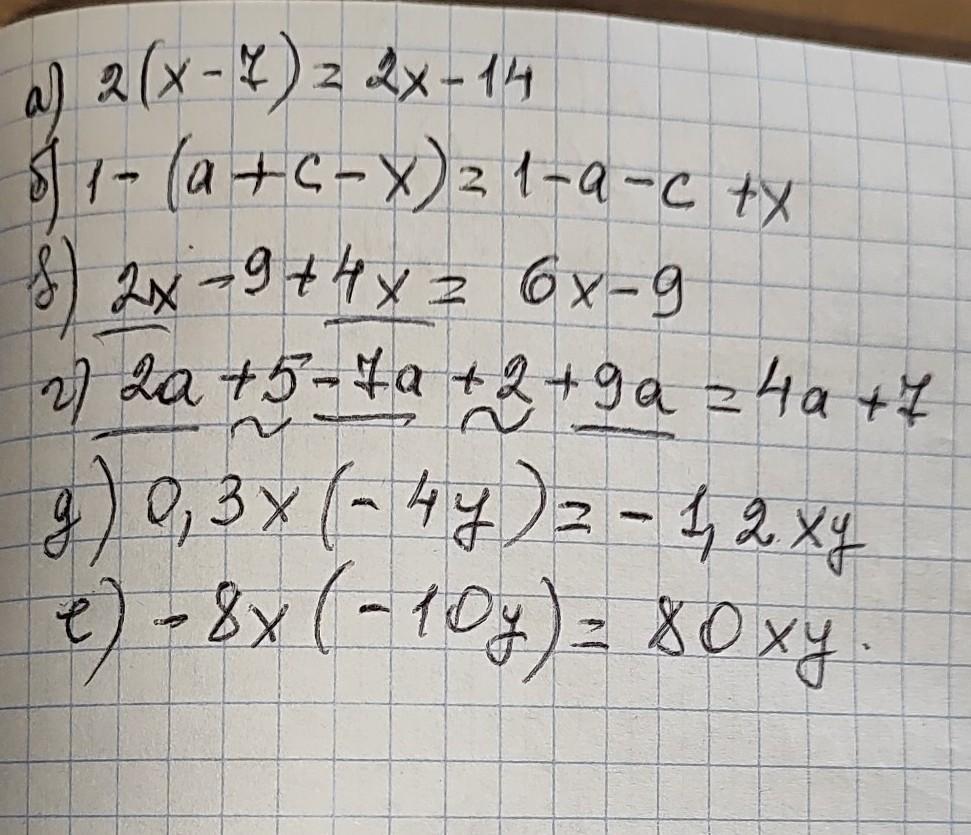 а) 2(x-7)=2x-14
б) 1-(a+c-x)=1-a-c+x
в) 2x-9+4x=6x-9
г) 2a+5-7a+2+9a=4a+7
д) 0,3x(-4y)=-1,2xy
е) -8x(-10y)=80xy.